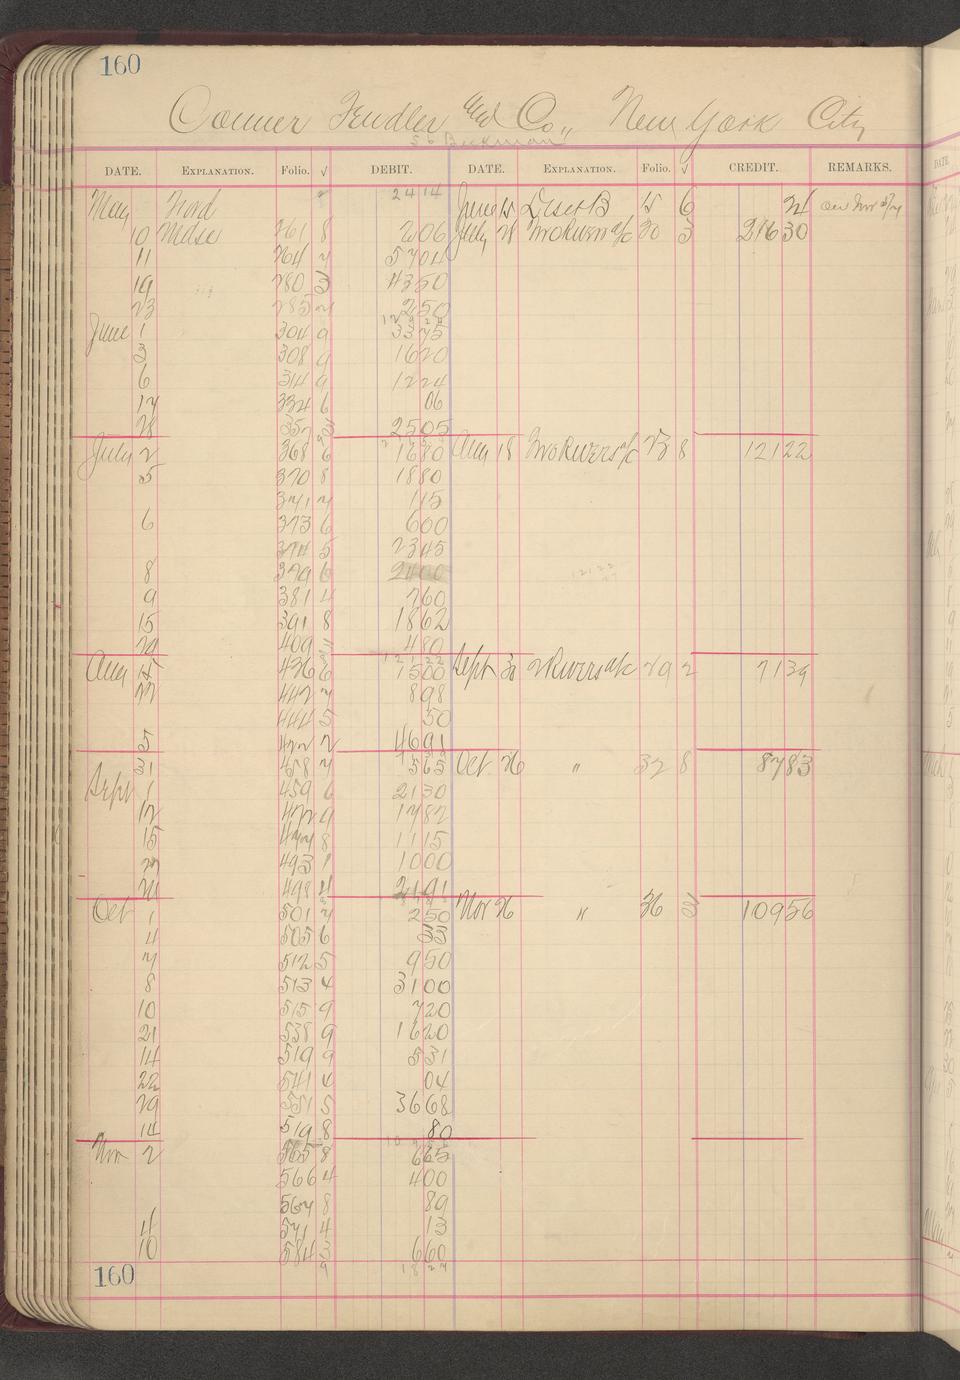 160
Conner Fendler and Co., New York City
56 Beekman
DATE. EXPLANATION. Folio. √ DEBIT. DATE. EXPLANATION. Folio. √ CREDIT. REMARKS.
May Ford 24 14 June 15 Disct B 15 6 24
10 Mdse 261 8 2 06 July 28 30 3 216 30
11 264 7 57 04
19 280 3 43 50
23 285 7 2 50
June 1 304 9 33 75
3 308 9 16 20
6 314 9 12 24
17 334 6 06
28 357 25 05
July 2 368 6 16 80 Aug 18 23 8 121 22
5 370 8 18 80
371 7 1 15
6 373 6 6 00
374 5 23 45
8 379 6 24 00
9 381 4 7 60
15 391 8 18 62
409 4 80
Aug 436 6 15 00 Sept 30 29 2 71 39
447 7 8 98
444 5 50
5 422 2 46 91
31 458 7 5 65 Oct 26 " 32 8 87 83
Sept 1 459 6 21 30
12 472 9 17 82
15 477 8 11 15
27 493 1 10 00
498 4 21 91
Oct 1 501 7 2 50 Nov 26 " 36 109 56
4 505 6 33
7 512 5 9 50
8 513 4 31 00
10 515 9 7 20
21 538 9 16 20
14 519 9 5 31
22 541 4 04
29 551 5 36 68
14 519 8 80
Nov 2 565 8 6 65
566 4 4 00
567 8 89
4 571 4 13
10 584 3 6 60
9 18 27
160